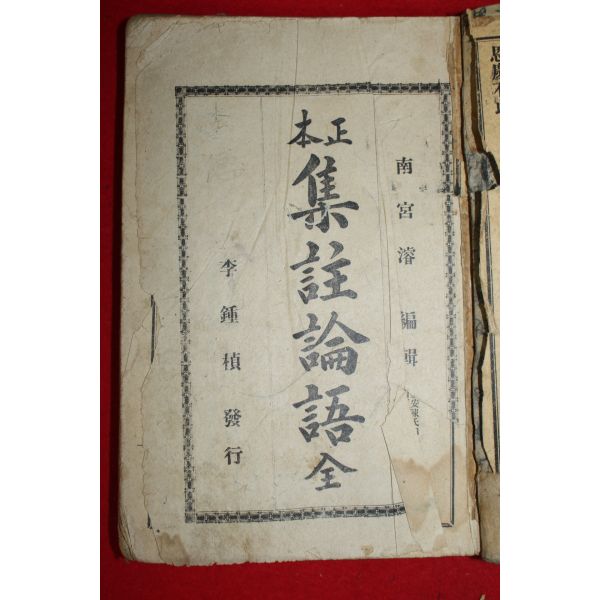 南宮濬 編輯
正本
集註論語全
李鍾楨發行